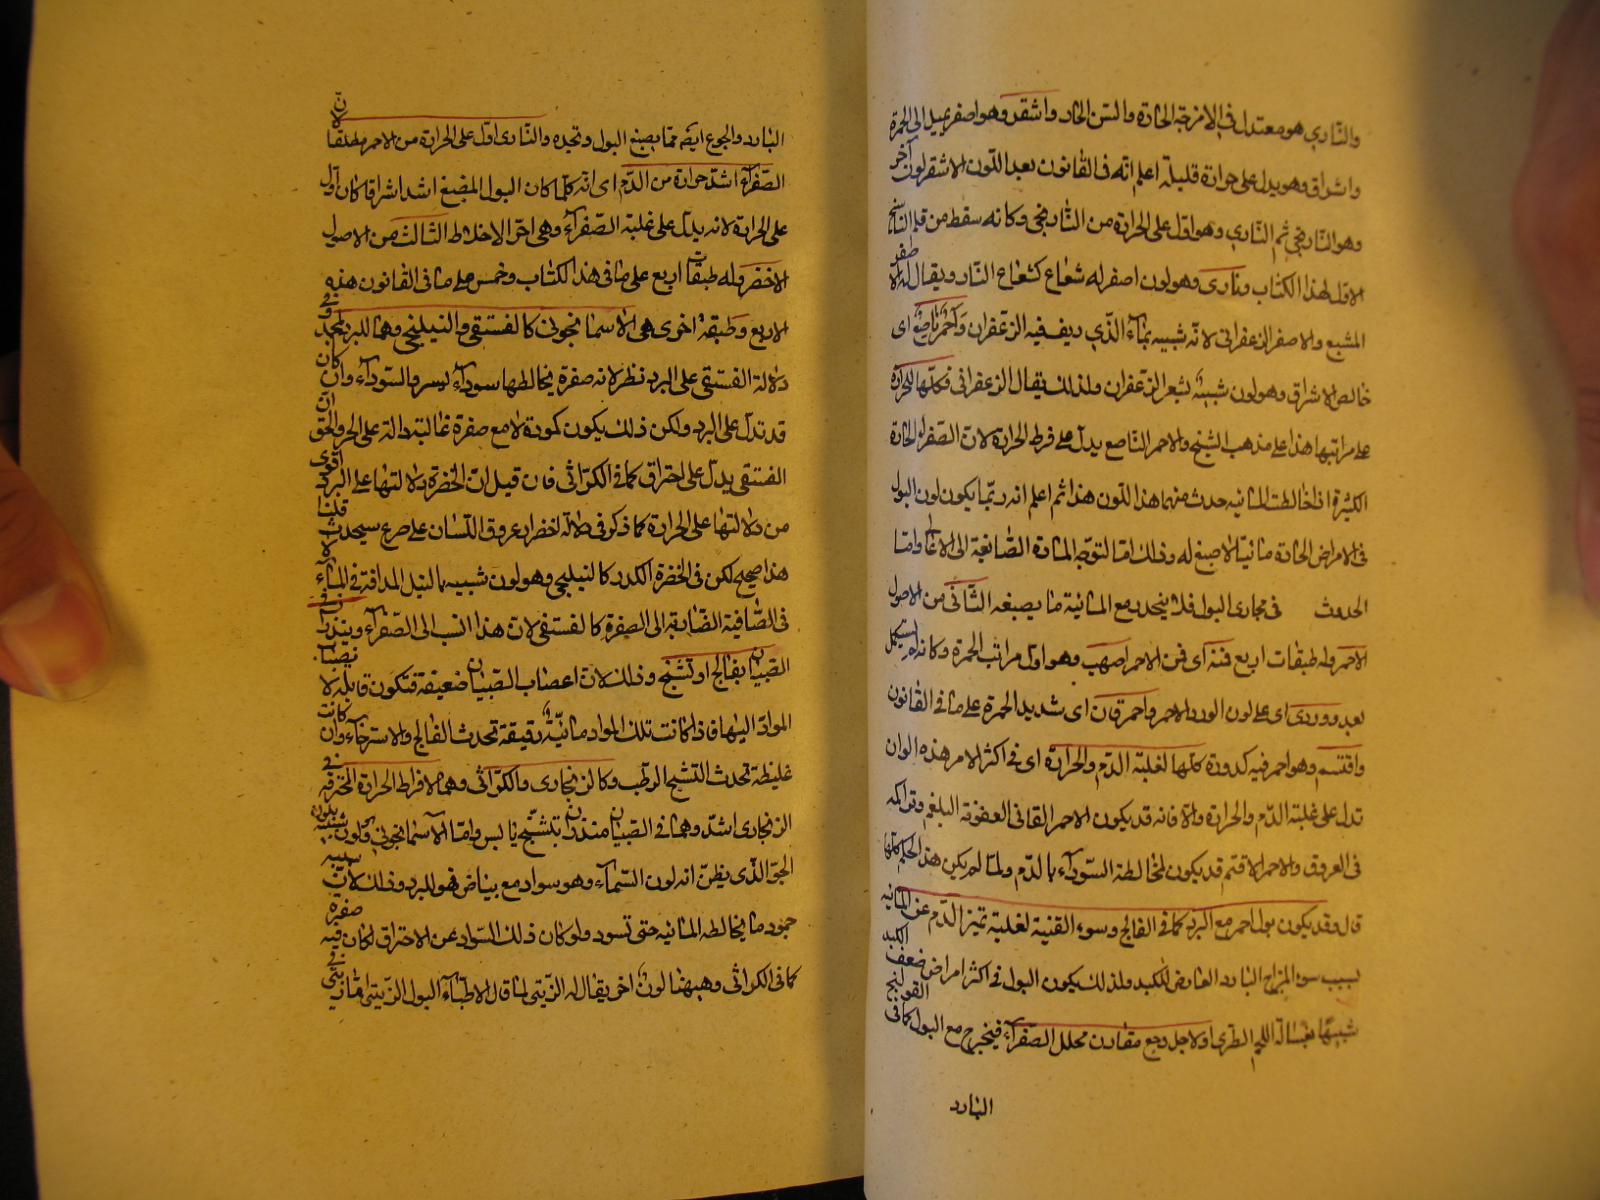 والنّاري هو معتدل فى الامزجة الحارة والسّن الحار واشقر وهو اصفر يميل الى الحمرة
واشراق وهو يدل على حرارة قليلة اعلم انّه فى القانون بعد اللّون الاشقر لون آخر
وهو النّارنجى ثم النّارى وهو ادل على الحرارة من النّارنجى وكانه سقط من قلم النّاسخ
الاول لهذا الكتاب ونارى وهو لون اصفر له شعاع كشعاع النّار ويقال له الاصفر
المشبع والاصفر الزعفرانى لانّه شبيه بماء الذّى ديف فيه الزعفران واحمر ناصع اى
خالص الاشراق وهو لون شبيه بشعر الزعفران ولذلك يقال الزعفرانى فكلّها للحرارة
على مراتبها هذا على مذهب الشيخ والاحمر النّاصع يدل على فرط الحرارة لان الصّفراء الحارة
الكثيرة اذا خالطت المائية حدث منهما هذا اللّون هذا ثم اعلم انه ربّما يكون لون البول
فى الامراض الحادة مائيّا لا صبغ له وذلك امّا لتوجّه المادة الصّابغة الى الاعالى وامّا
الحدوث فى مجارى البول فلا ينحدر مع المائية ما يصبغه الثّانى من الاصول
الاحمر وله طبقات اربع فمنه اى فمن الاحمر اصهب وهو اول مراتب الحمرة وكانه لم يستكمل
بعد ووردى اى على لون الورد الاحمر واحمر قان اى شديد الحمرة على ما فى القانون
واقتم وهو احمر فيه كدورة كلّها لغلبة الدّم والحرارة اى فى اكثر الامر هذه الوان
تدل على غلبة الدّم والحرارة والا فانه قد يكون الاحمر القانى لعفونة البلغم وتراكمه
فى العروق والاحمر الاقتم قد يكون لمخالطة السّوداء بالدّم ولما لم يكن هذا الحكم كليّا
قال وقد يكون بول احمر مع البرد كما فى الفالج وسوء القنية لغلبة تميز الدّم عن المائيه
بسبب سوء المزاج البارد العارض للكبد ولذلك يكون البول فى اكثر امراض ضعف الكبد
شبيها بغسالة اللحم الطرى او لاجل وجع مقارن محلل الصّفراء فيخرج مع البول كما فى القولنج
البارد
البارد والجوع ايضا ممّا يصبغ البول وتحدّه والنّارى ادل على الحرارة من الاحمر مطلقا لان
الصّفراء اشد حرارة من الدّم اى انّه كلّما كان البول المصبغ اشد اشراقا كان ادل
على الحرارة لانه يدل على غلبة الصّفراء وهى احر الاخلاط الثّالث من الاصول
الاخضر وله طبقات اربع على ما فى هذا الكتاب وخمس على ما فى القانون هذه
الاربع وطبقة اخرى هى الاسمانجونى كالفستقى والنيلنجى وهما للبرد المجمد وفى
دلالة الفستقى على البرد نظر لانه صفرة يخالطها سوداء يسير والسّوداء وان كان
قد تدل على البرد ولكن ذلك يكون كمودة لا مع صفرة غالبة دالة على الحر والحق ان
الفستقى يدل على احتراق كما فى الكرّاثى فان قيل ان الخضرة دلالتها على البرد اقوى
من دلالتها على الحرارة كما ذكر فى دلالة اخضرار عروق اللّسان على صرع سيحدث قلنا
هذا صحيح لكن فى الخضرة الكدر كالنيلنجى وهو لون شبيه بالنيل المدافة فى الماء لا
فى الصّافية الضّاربة الى الصفرة كالفستقى لان هذا انسب الى الصّفراء وينذر فى
الصّبيان بفالج او تشنّج وذلك لان اعصاب الصّبيان ضعيفة فتكون قابلة لانصباب
الموادّ اليها فاذا كانت تلك المواد مائيّة رقيقة تحدث الفالج والاسترخاء وان كانت
غليظة تحدث التشنج الرّطب وكالزنجارى والكرّاثى وهما لافراط الحرارة المحرقة فى
الزنجارى اشدّ وهما فى الصّبيان منذران بتشنّج يابس وامّا الاسمانجونى ولون شبيه بلون
الجوّ الذّى يظنّ انه لون السّماء وهو سواد مع بياض فهو للبرد وذلك لان سببه
جمود ما يخالطه المائيه حتى تسود ولو كان ذلك السّواد عن الاحتراق لكان فيه صفرة
كما فى الكرّاثى وهيهنا لون آخر يقال له الزّيتى لما قال الاطبّاء البول الزّيتى امّا زيتى فى